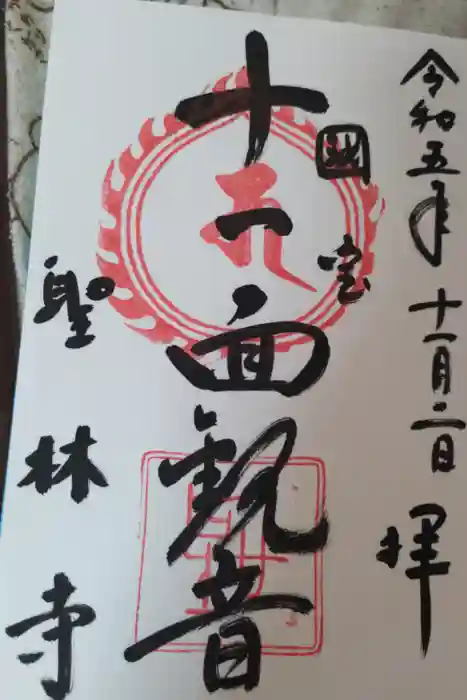 令和五年十一月二日 拝
國宝
十一面観音
聖林寺